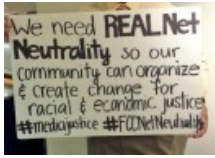 We need REAL Net
Neutrality so our
community can organize
& create change for
racial & economic justice
#mediajustice #FCCNetNeutrality